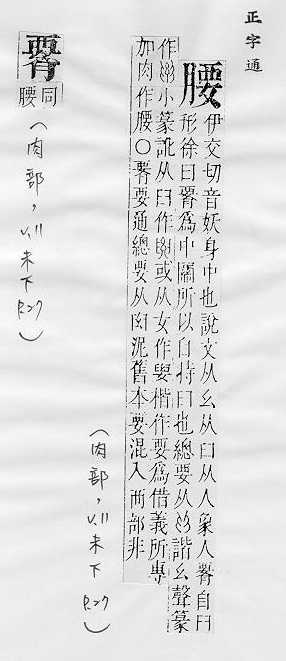 正字通
腰
伊交切音妖身中也說文从幺从臼从人象人𦝫自臼
形徐曰𦝫爲中關所以自持臼也總要从諧幺聲篆
作小篆訛从臼作或从女作楷作要爲借義所專
加肉作腰○𦝫要通總要从囟泥舊本要混入襾部非
(肉部, v.11 未下 P.27)
𦝫
同腰
(肉部, v.11 未下 P.27)